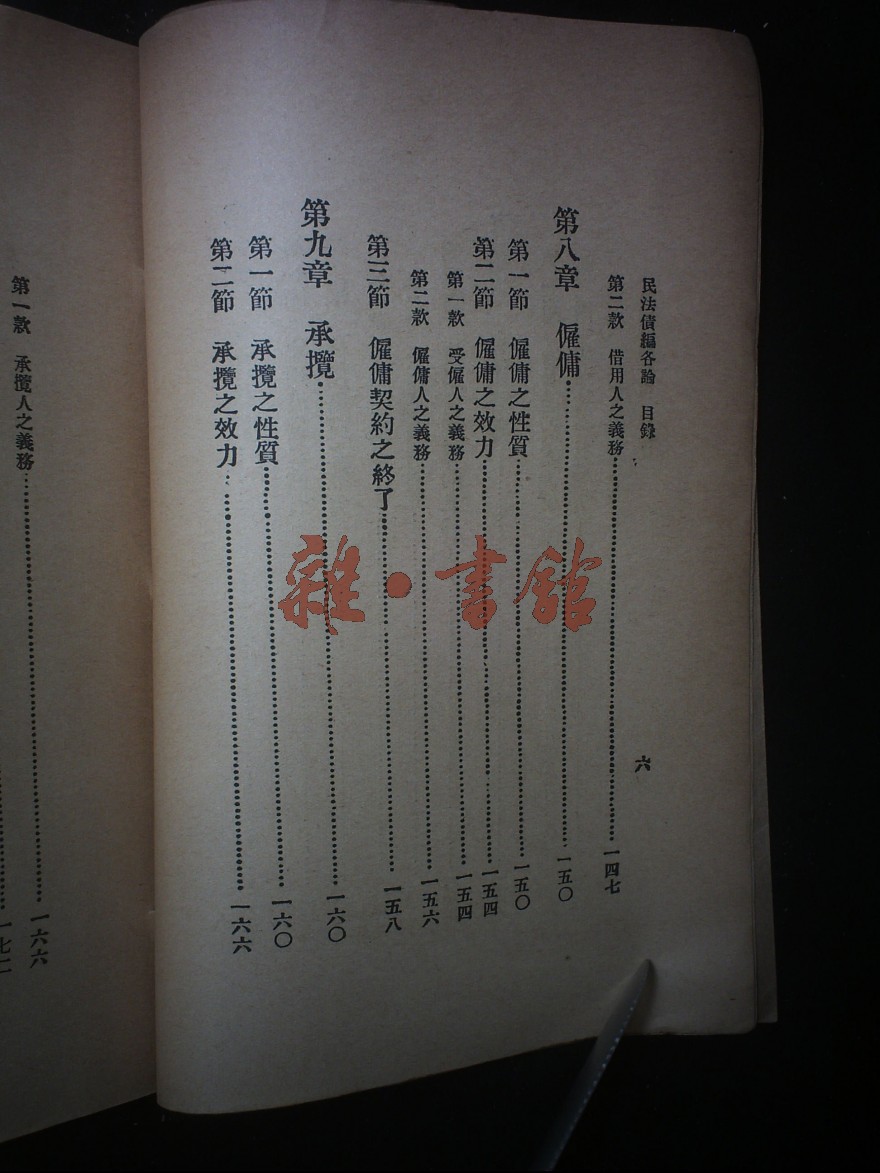 民法債編各論　目錄
六
第二款　借用人之義務……一四七
第八章　僱傭……一五〇
第一節　僱傭之性質……一五〇
第二節　僱傭之效力……一五四
第一款　受僱人之義務……一五四
第二款　僱傭人之義務……一五六
第三節　僱傭契約之終了……一五八
第九章　承攬……一六〇
第一節　承攬之性質……一六〇
第二節　承攬之效力……一六六
第一款　承攬人之義務……一六六
一七二
雜・書館